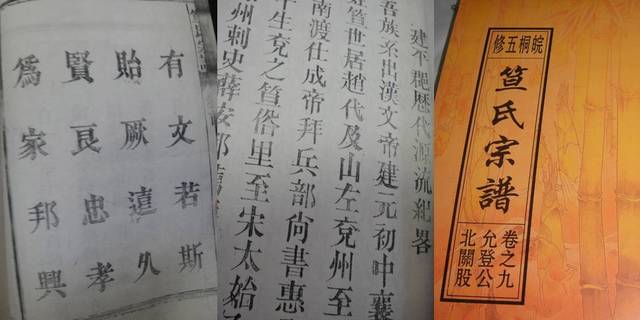 有文若斯
貽厥遠久
賢良忠孝
爲家邦興
建平歷代源流紀畧
吾族系出漢文帝建元初中襄
笪世居趙代及山左兗州至
南渡仕成帝拜兵部尚書惠
生兗之笪俗里至宋太始
州刺史薛安
皖桐五修
笪氏宗譜
卷之九
允登公
北關股